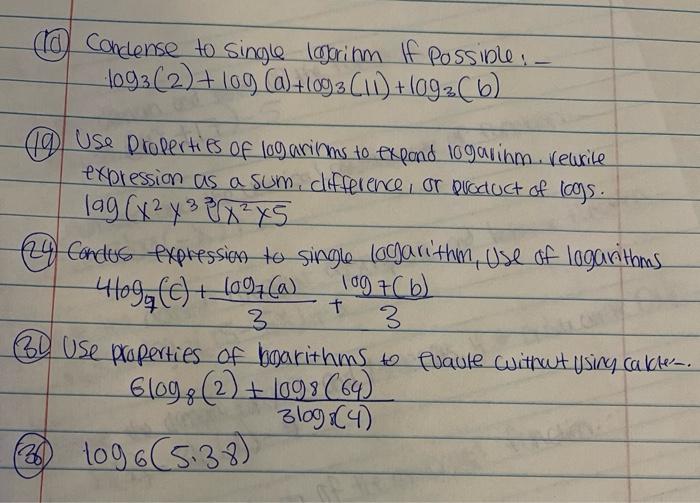 10 Condense to single logrinm If Possible. -
log3(2) + log(a) + log3(11) + log3(b)
19 Use Properties of logarinms to expand logarinm. rewrite
expression as a sum, difference, or product of logs.
log(x²y³ ³√x²y5
24 expression to single logarithm, Use of logarithms
4log7(c) + log7(a)/3 + log7(b)/3
Use properties of logarithms to without using
6log8(2) + log8(64)
3log8(4)
36 log6(5.38)